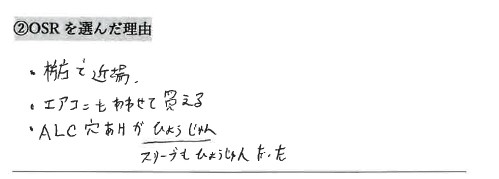 ②OSRを選んだ理由
・栃店で近場.
・エアコンもあわせて買える
・ALC穴ありがひょうじゅん
スリーブもひょうじゅんだった